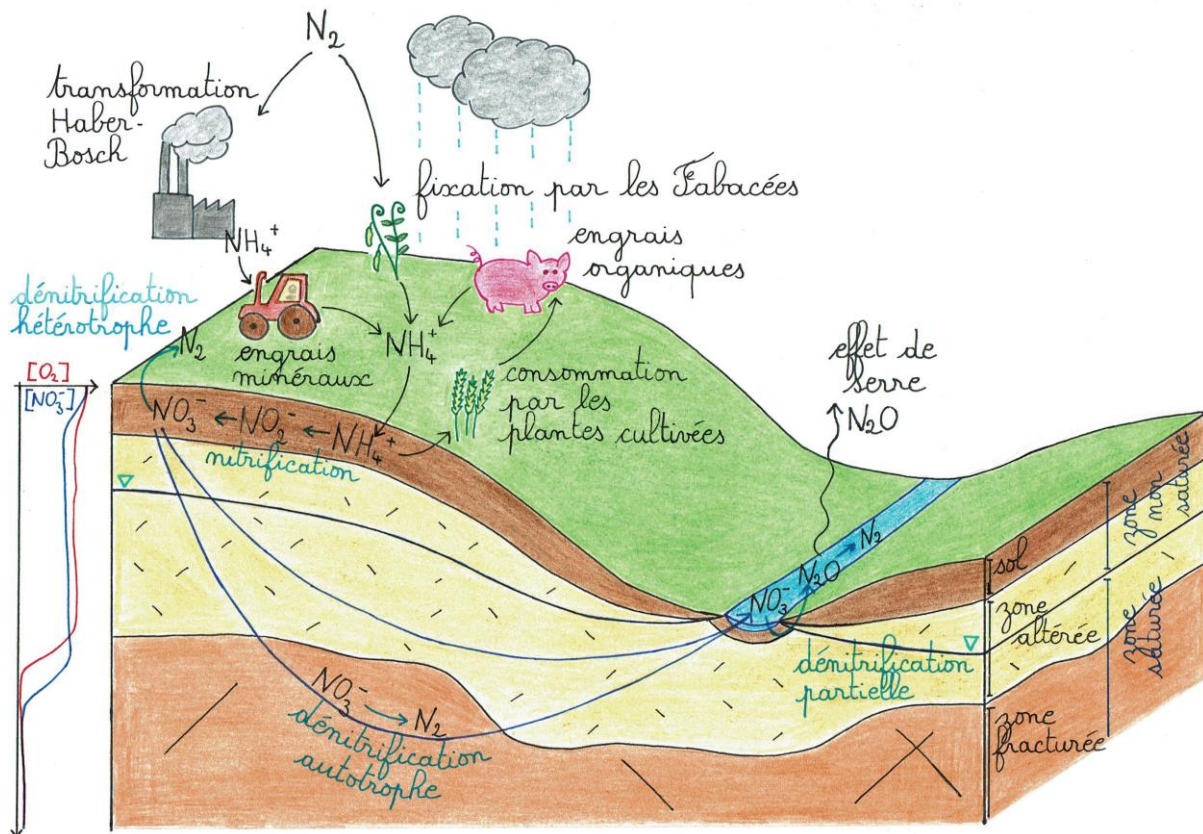 N₂
transformation
Haber-
Bosch
fixation par les Fabacées
NH₄⁺
engrais
organiques
dénitrification
hétérotrophe
N₂
engrais
minéraux
NH₄⁺
consommation
par les
plantes cultivées
effet de
serre
N₂O
[O₂]
[NO₃⁻]
NO₃⁻ ← NO₂⁻ ← NH₄⁺
nitrification
N₂
N₂O
NO₃⁻
dénitrification
partielle
NO₃⁻ → N₂
dénitrification
autotrophe
sol
zone
altérée
zone
fracturée
zone
non
saturée
zone
saturée